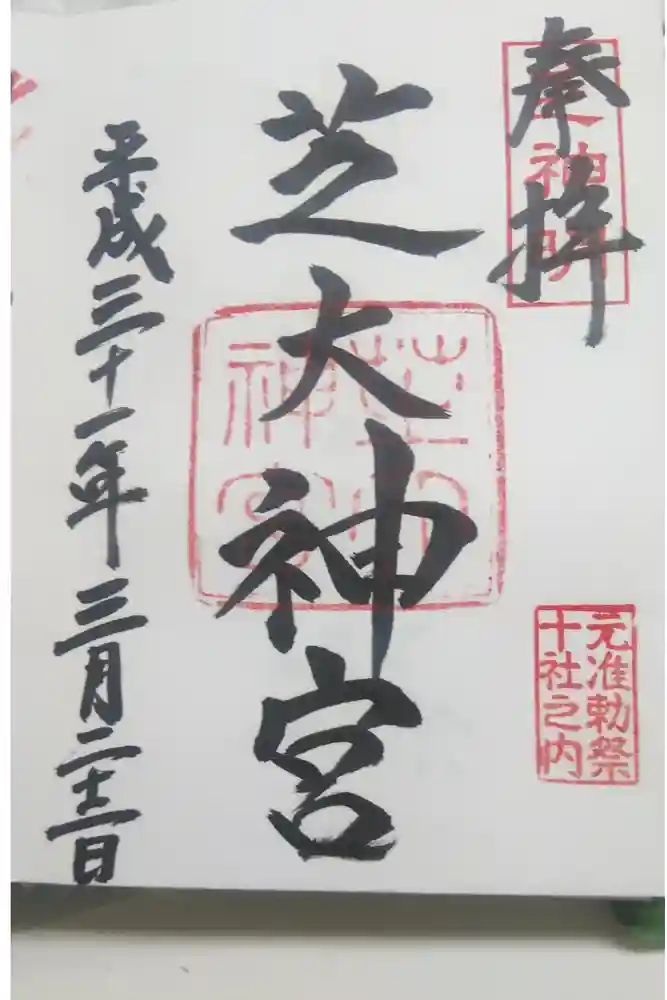 奉拝
芝神明
芝大神宮
芝大
神宮
元准勅祭
十社之内
平成三十一年三月二十二日